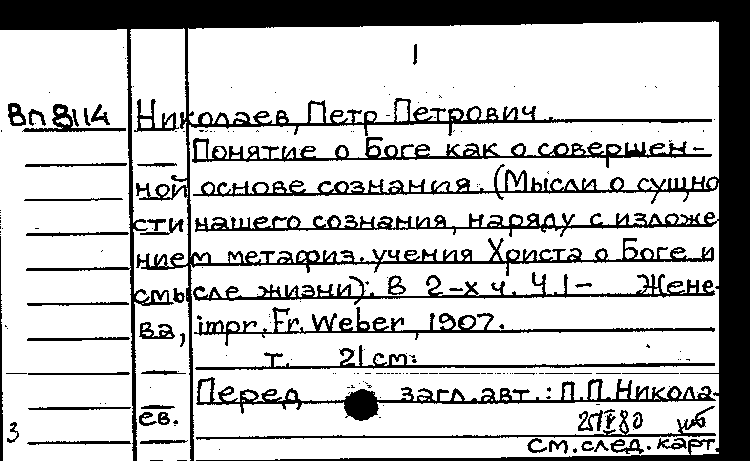 1
Вп 8114 Николаев, Петр Петрович.
Понятие о Боге как о совершен-
ной основе сознания. (Мысли о сущно
сти нашего сознания, наряду с изложе
нием метафиз. учения Христа о Боге и
смысле жизни). В 2-х ч. Ч. I - Жене-
ва, impr. Fr. Weber, 1907.
т. 21 см.
Перед загл. авт.: П.П. Никола-
ев.
3
см. след. карт.